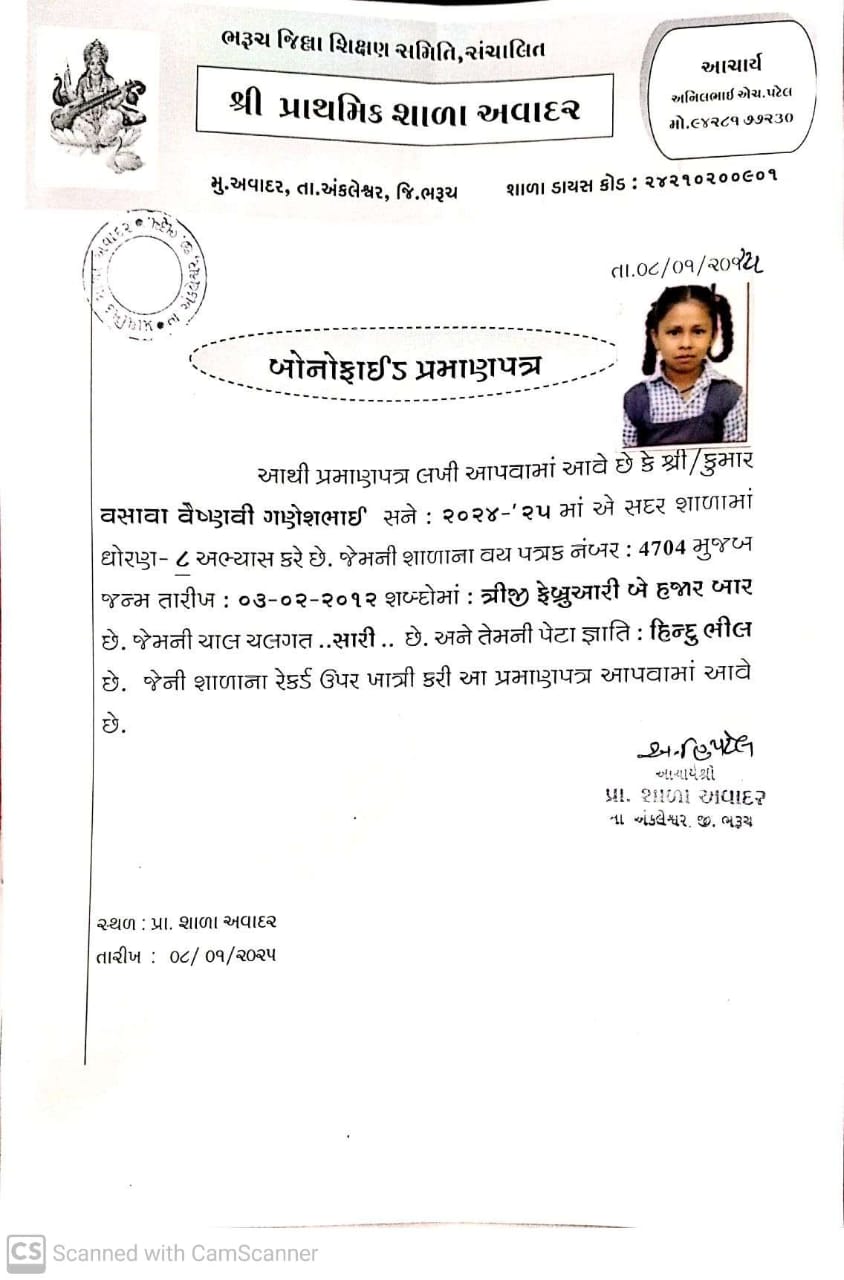 ભરૂચ જિલ્લા શિક્ષણ સમિતિ,સંચાલિત
શ્રી પ્રાથમિક શાળા અવાદર
આચાર્ય
અનિલભાઈ એચ.પટેલ
મો.૯૪૨૮૧ ૭૭૨૩૦
મુ.અવાદર, તા.અંકલેશ્વર, જિ.ભરૂચ
શાળા ડાયસ કોડ : ૨૪૨૧૦૨૦૦૯૦૧
તા.૦૮/૦૧/૨૦૨૫
બોનોફાઈડ પ્રમાણપત્ર
આથી પ્રમાણપત્ર લખી આપવામાં આવે છે કે શ્રી/કુમાર
વસાવા વૈષ્ણવી ગણેશભાઈ સને : ૨૦૨૪-'૨૫ માં એ સદર શાળામાં
ધોરણ- ૮ અભ્યાસ કરે છે. જેમની શાળાના વય પત્રક નંબર : 4704 મુજબ
જન્મ તારીખ : ૦૩-૦૨-૨૦૧૨ શબ્દોમાં : ત્રીજી ફેબ્રુઆરી બે હજાર બાર
છે. જેમની ચાલ ચલગત ..સારી .. છે. અને તેમની પેટા જ્ઞાતિ : હિન્દુ ભીલ
છે. જેની શાળાના રેકર્ડ ઉપર ખાત્રી કરી આ પ્રમાણપત્ર આપવામાં આવે
છે.
આચાર્યશ્રી
પ્રા. શાળા અવાદર
તા અંકલેશ્વર. જી. ભરૂચ
સ્થળ : પ્રા. શાળા અવાદર
તારીખ : ૦૮/ ૦૧/૨૦૨૫
CS Scanned with CamScanner